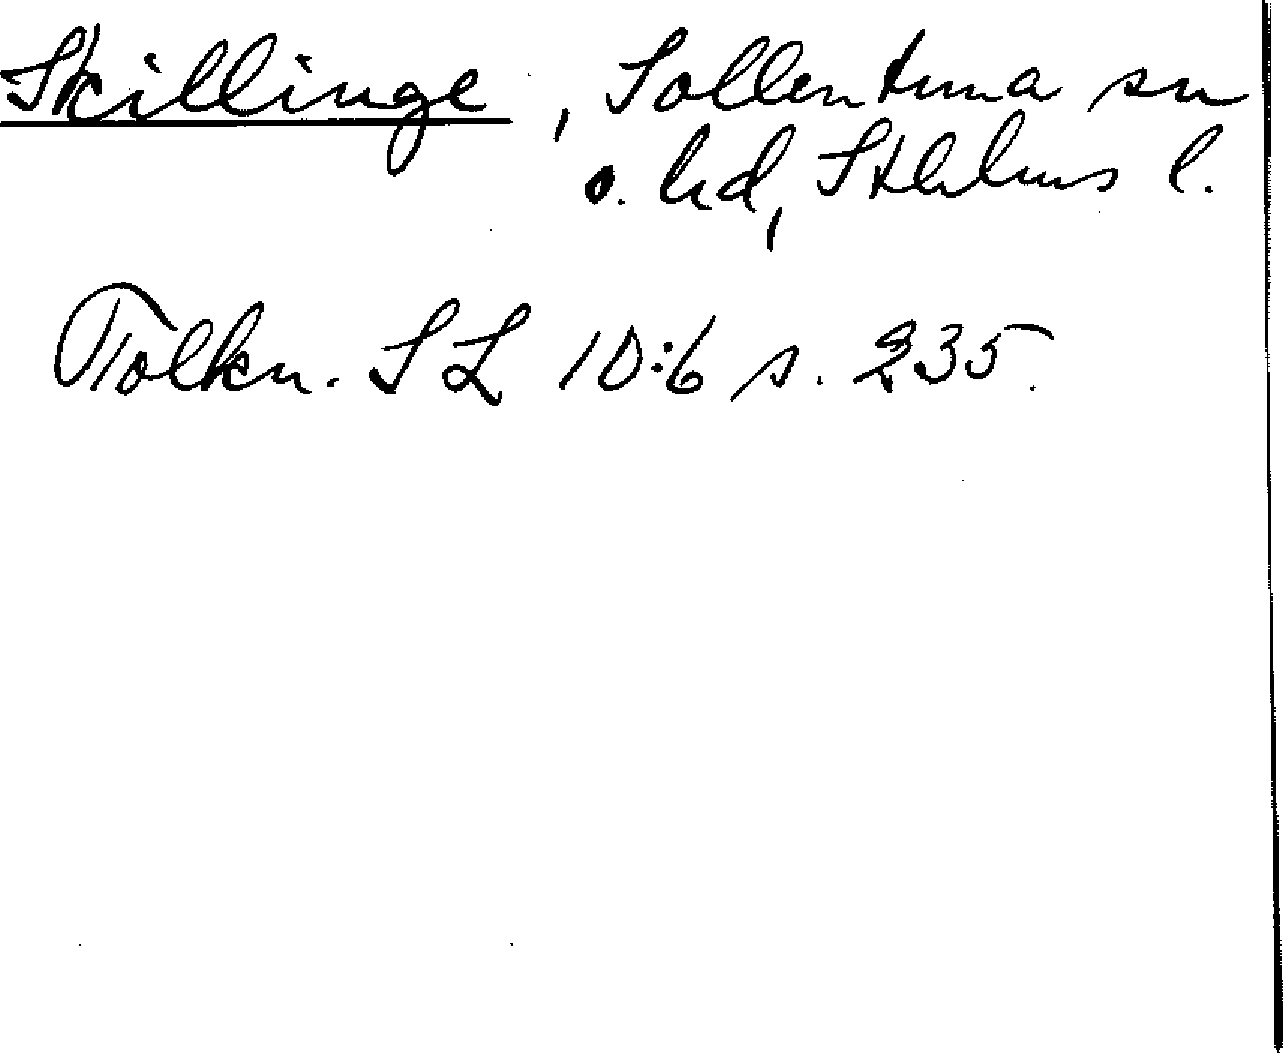 Skillinge, Sollentuna sn
o. hd, Sthlms l.
Tolkn. SL 10:6 s. 235.